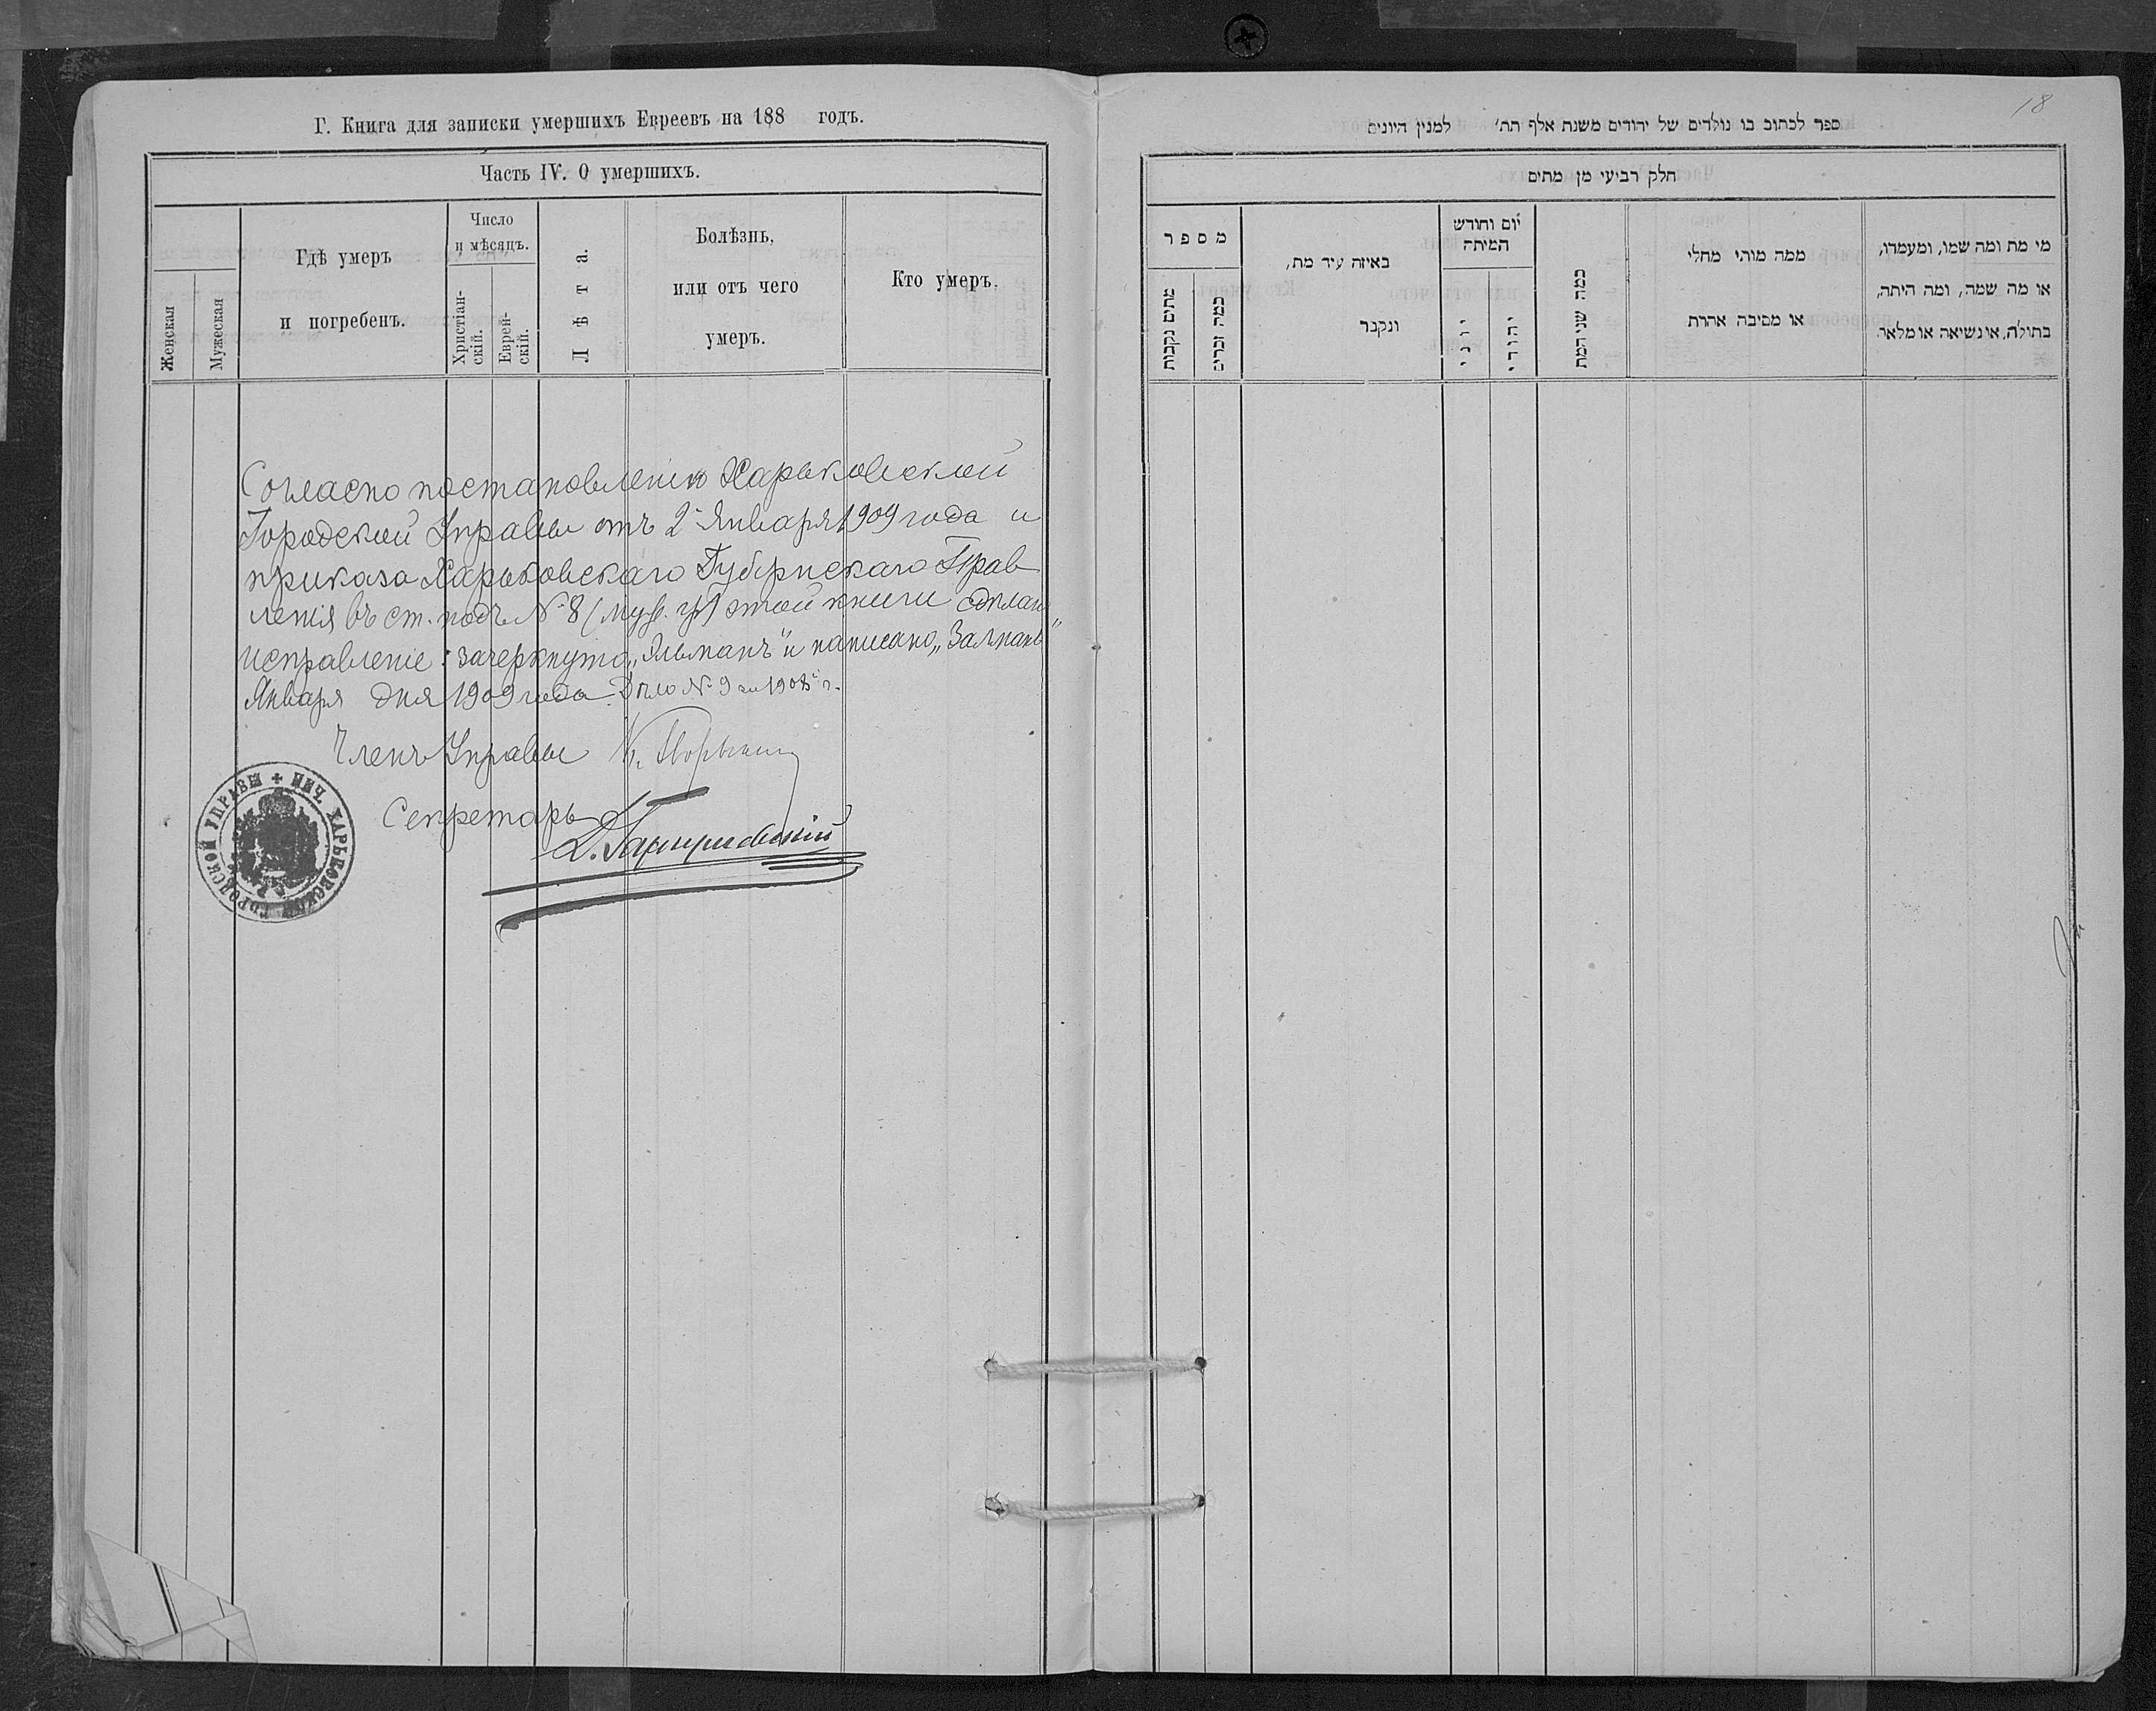 Г. Книга для записки умершихъ Евреевъ на 188 годъ.
Часть IV. О умершихъ.
Женская
Мужеская
Гдѣ умеръ
и погребенъ.
Число
и мѣсяцъ.
Христіан-
скій.
Еврей-
скій.
Лѣта.
Болѣзнь,
или отъ чего
умеръ.
Кто умеръ.
Согласно постановленію Харьковской
Городской Управы отъ 2 Января 1909 года и
приказа Харьковскаго Губернскаго Прав
ленія въ ст. подъ № 8 этой книги сдѣлано
исправленіе: зачеркнуто „Яльманъ" и написано „Залманъ"
Января дня 1909 года. Дѣло № 9 1908 г.
Членъ Управы
Секретарь
ПЕЧ. ХАРЬКОВСКОЙ ГОРОДСКОЙ УПРАВЫ
18
ספר לכתוב בו נולדים של יהודים משנת אלף תת' למנין היונים
חלק רביעי מן מתים
מספר
מתים נקבות
כמה זכרים
באיזה עיר מת,
ונקבר
יום וחודש
המיתה
יוני
יהודי
כמה שני המת
ממה מותי מחלי
או מסיבה אהרת
מי מת ומה שמו, ומעמדו,
או מה שמה, ומה היתה,
בתולה, או נשיאה או מלאי.